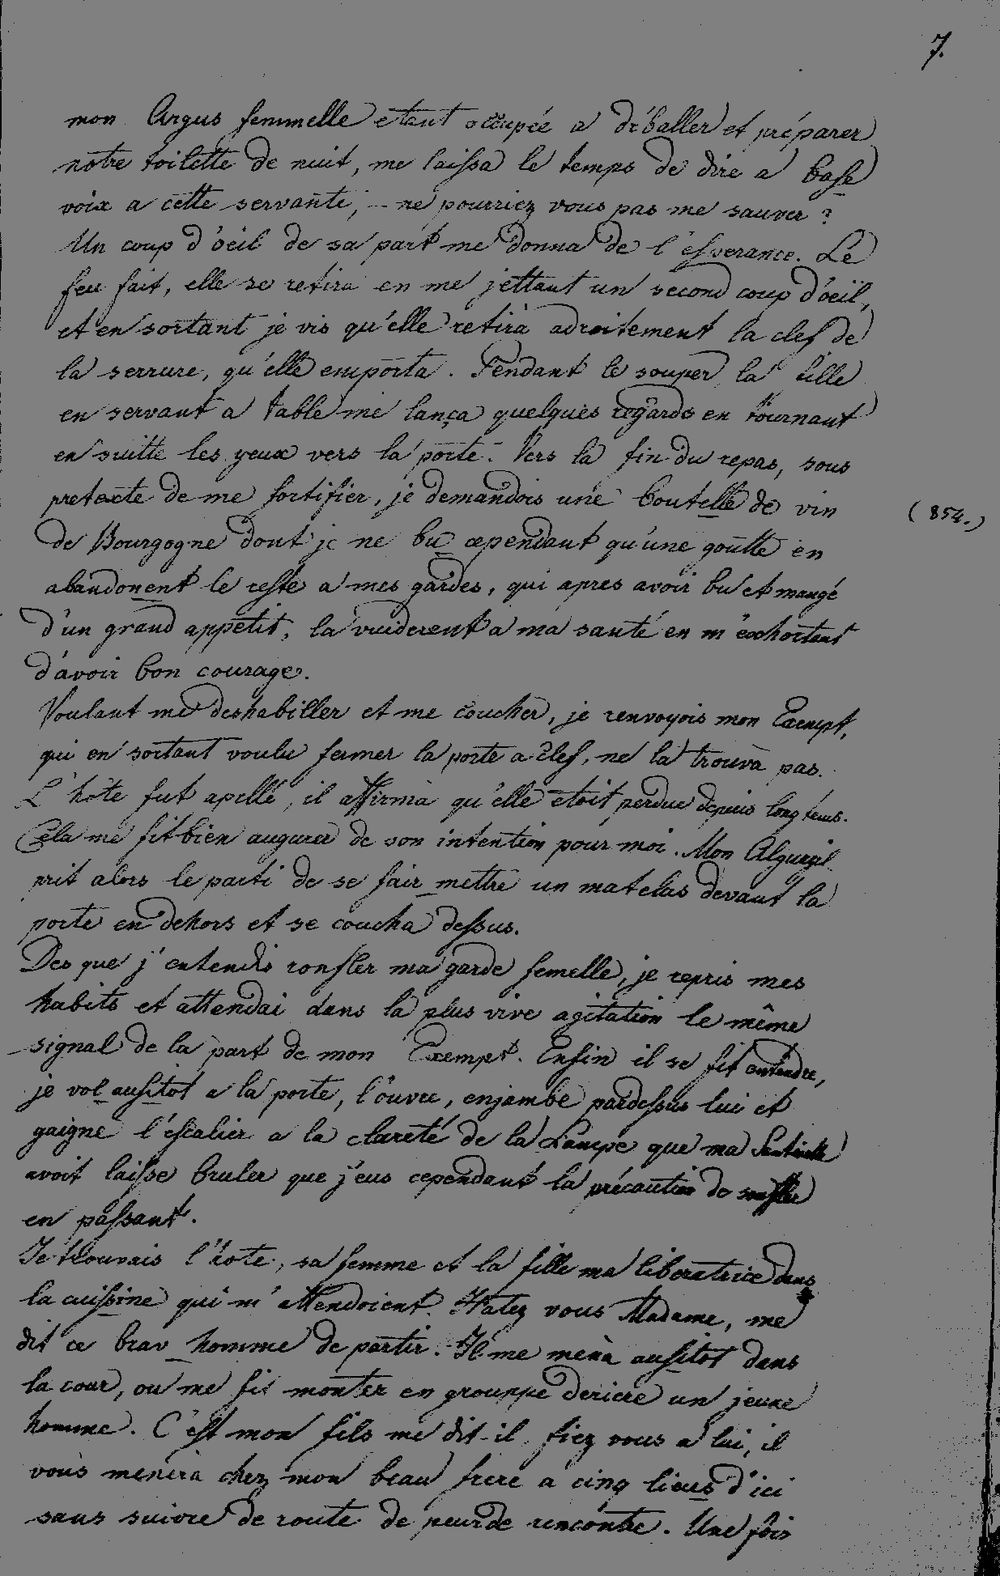 7.
mon Argus femmelle etant occupée a déballer et préparer
notre toilette de nuit, me laissa le temps de dire a base
voix a cette servante, -- ne pourriez vous pas me sauver ?
Un coup d'oeil de sa part me donna de l'esperance. Le
feu fait, elle se retira en me jettant un second coup d'oeil,
et en sortant je vis qu'elle retira adroitement la clef de
la serrure, qu'elle emporta. Pendant le souper la fille
en servant a table me lança quelques regards en tournant
en suitte les yeux vers la porte. Vers la fin du repas, sous
pretexte de me fortifier, je demandois une boutelle de vin
(854.)
de Bourgogne dont je ne bu cependant qu'une goutte en
abandonent le reste a mes gardes, qui apres avoir bu et mangé
d'un grand appetit, la vuiderent a ma santé en m'exhortant
d'avoir bon courage.
Voulant me deshabiller et me coucher, je renvoyois mon Exempt,
qui en sortant voulu fermer la porte a clef, ne la trouva pas.
L'hôte fut apellé, il affirma qu'elle etoit perdue depuis long tems.
Cela me fit bien augurer de son intention pour moi. Mon Alguazil
prit alors le parti de se fair mettre un matelas devant la
porte en dehors et se coucha dessus.
Des que j'entendis ronfler ma garde femelle, je repris mes
habits et attendai dans la plus vive agitation le même
signal de la part de mon Exempt. Enfin il se fit entendre,
je vol ausitot a la porte, l'ouvre, enjambe pardessus lui et
gaigne l'escalier a la clareté de la Lampe que ma Sentinelle
avoit laisse bruler que j'eus cependant la précaution de souffler
en passant.
Je trouvais l'hote, sa femme et la fille ma liberatrice dans
la cuissine qui m'attendoient. Hatez vous Madame, me
dit ce brav homme de partir. Il me mena ausitot dans
la cour, ou me fit monter en grouppe deriere un jeune
homme. C'est mon fils me dit-il, fiez vous a lui, il
vous menera chez mon beau frere a cinq lieus d'ici
sans suivre de route de peur de rencontre. Une fois